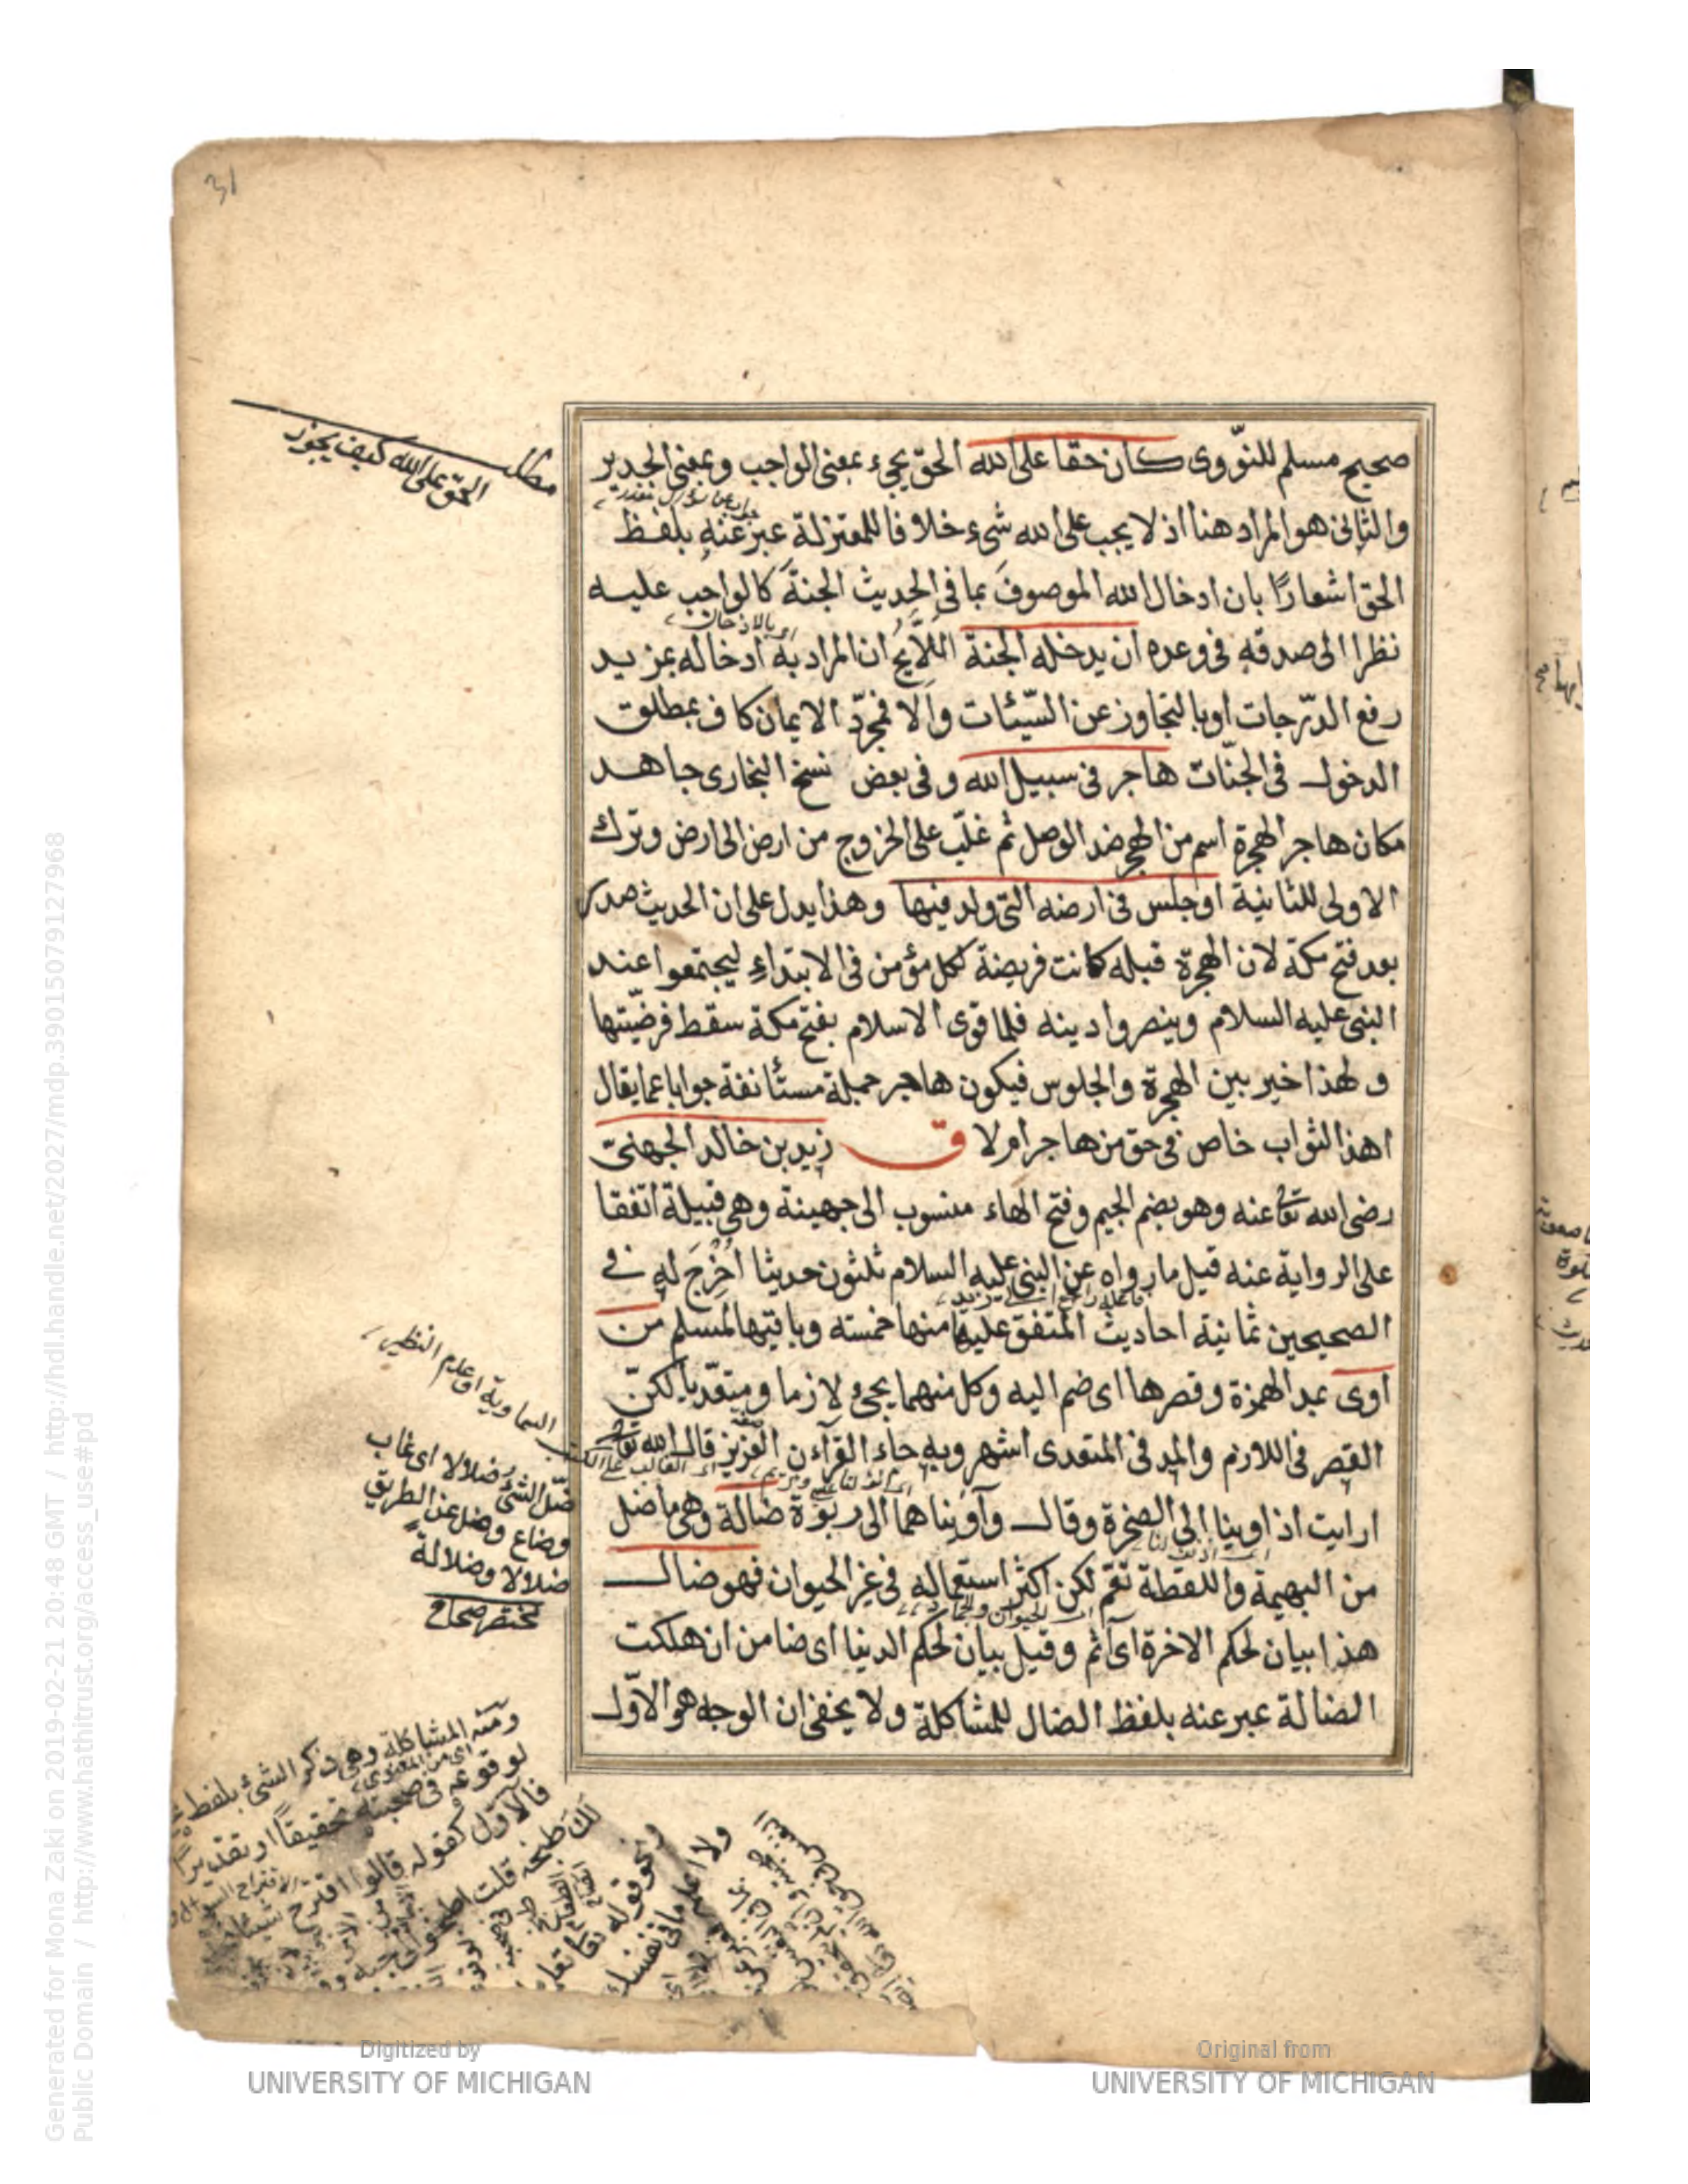 31
صحيح مسلم للنّووى كان حقا على الله الحقّ يجىء بمعنى الواجب وبمعنى الجدير
والثانى هو المراد هنا اذ لا يجب على الله شىء خلافا للمعتزلة عبر عنه بلفظ
الحق اشعارًا بان ادخال الله الموصوف بما فى الحديث الجنةَ كالواجب عليه
نظرا الى صدقه فى وعده ان يدخله الجنة اللايح ان المراد به ادخاله بمزيد
رفع الدرّجات او بالتجاوز عن السّيئات والا فمجرّد الايمان كاف بمطلق
الدخول فى الجنّات هاجر فى سبيل الله وفى بعض نسخ البخارى جاهد
مكان هاجر الهجرة اسم من الهجر ضد الوصل ثم غلّب على الخروج من ارض الى ارض وترك
الاولى للثانية او جلس فى ارضه التى ولد فيها وهذا يدل على ان الحديث صدر
بعد فتح مكة لان الهجرة قبله كانت فريضة لكل مؤمن فى الابتداء ليجتمعوا عند
النبى عليه السلام وينصروا دينه فلما قوى الاسلام بفتح مكة سقط فرضيّتها
ولهذا خير بين الهجرة والجلوس فيكون هاجر جملة مستأنفة جوابا عما يقال
اهذا الثواب خاص فى حق من هاجر ام لا ق زيد بن خالد الجهنىّ
رضى الله تعا عنه وهو بضم الجيم وفتح الهاء منسوب الى جهينة وهى قبيلة اتفقا
على الرواية عنه قيل ما رواه عن النبى عليه السلام ثلثون حديثا اُخرِجَ له فى
الصحيحين ثمانية احاديث المتفق عليها منها خمسته وباقيها لمسلم من
آوى بمد الهمزة وقصرها اى ضم اليه وكل منهما يجىء لازما ومتعدّيا لكنّ
القصر فى اللازم والمد فى المتعدى اشهر وبه جاء القرآءن العزيز قال الله تعا
ارايت اذ اوينا الى الصخرة وقال وآويناهما الى ربوة ضالة وهى ما ضل
من البهيمة واللقطة تعّم لكن اكثر استعماله فى غير الحيوان فهو ضال
هذا بيان لحكم الاخرة اى آثم وقيل بيان لحكم الدنيا اى ضامن ان هلكت
الضالة عبر عنه بلفظ الضال للمشاكلة ولا يخفى ان الوجه هو الاوّل
مطلب
الحق على الله كيف يجوز
السماوية اى عديم النظير
ضلّ الشئ ضلالا اى غاب
وضاع وضل عن الطريق
ضلالا وضلالة
مختصر صحاح
ومنه المشاكلة وهى ذكر الشئ بلفظ
لوقوعه فى صحبته تحقيقا او تقديرا
فالاوّل كقوله قالوا اقترح شيئا
لك طبخه قلت اطبخوا
ونحو قوله تعا تعلم
ولا اعلم ما فى نفسك
Generated for Mona Zaki on 2019-02-21 20:48 GMT / http://hdl.handle.net/2027/mdp.39015079127968
Public Domain / http://www.hathitrust.org/access_use#pd
Digitized by
UNIVERSITY OF MICHIGAN
Original from
UNIVERSITY OF MICHIGAN